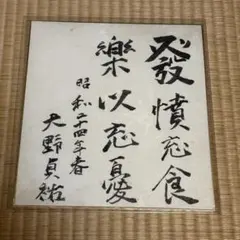 發憤忘食
樂以忘憂
昭和二十四年春
大野貞祐